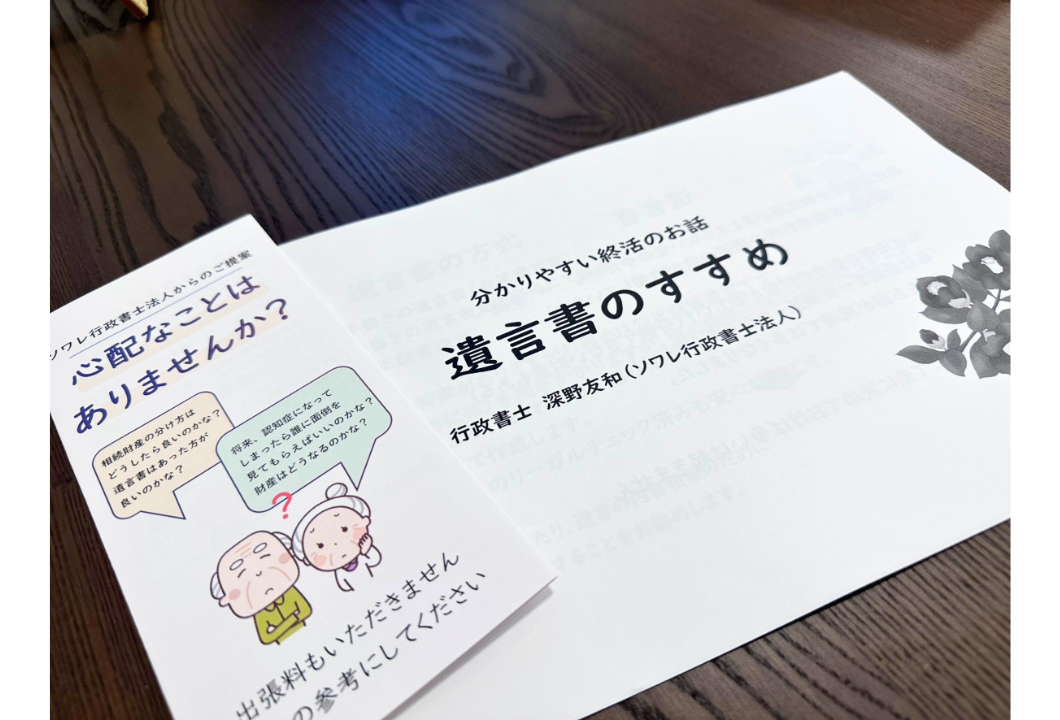 ソワレ行政書士法人からのご提案
心配なことは
ありませんか?
相続財産の分け方は
どうしたら良いのかな?
遺言書はあった方が
良いのかな?
将来、認知症になって
しまったら誰に面倒を
見てもらえばいいのかな?
財産はどうなるのかな?
?
出張料もいただきません
の参考にしてください
分かりやすい終活のお話
遺言書のすすめ
行政書士 深野友和(ソワレ行政書士法人)